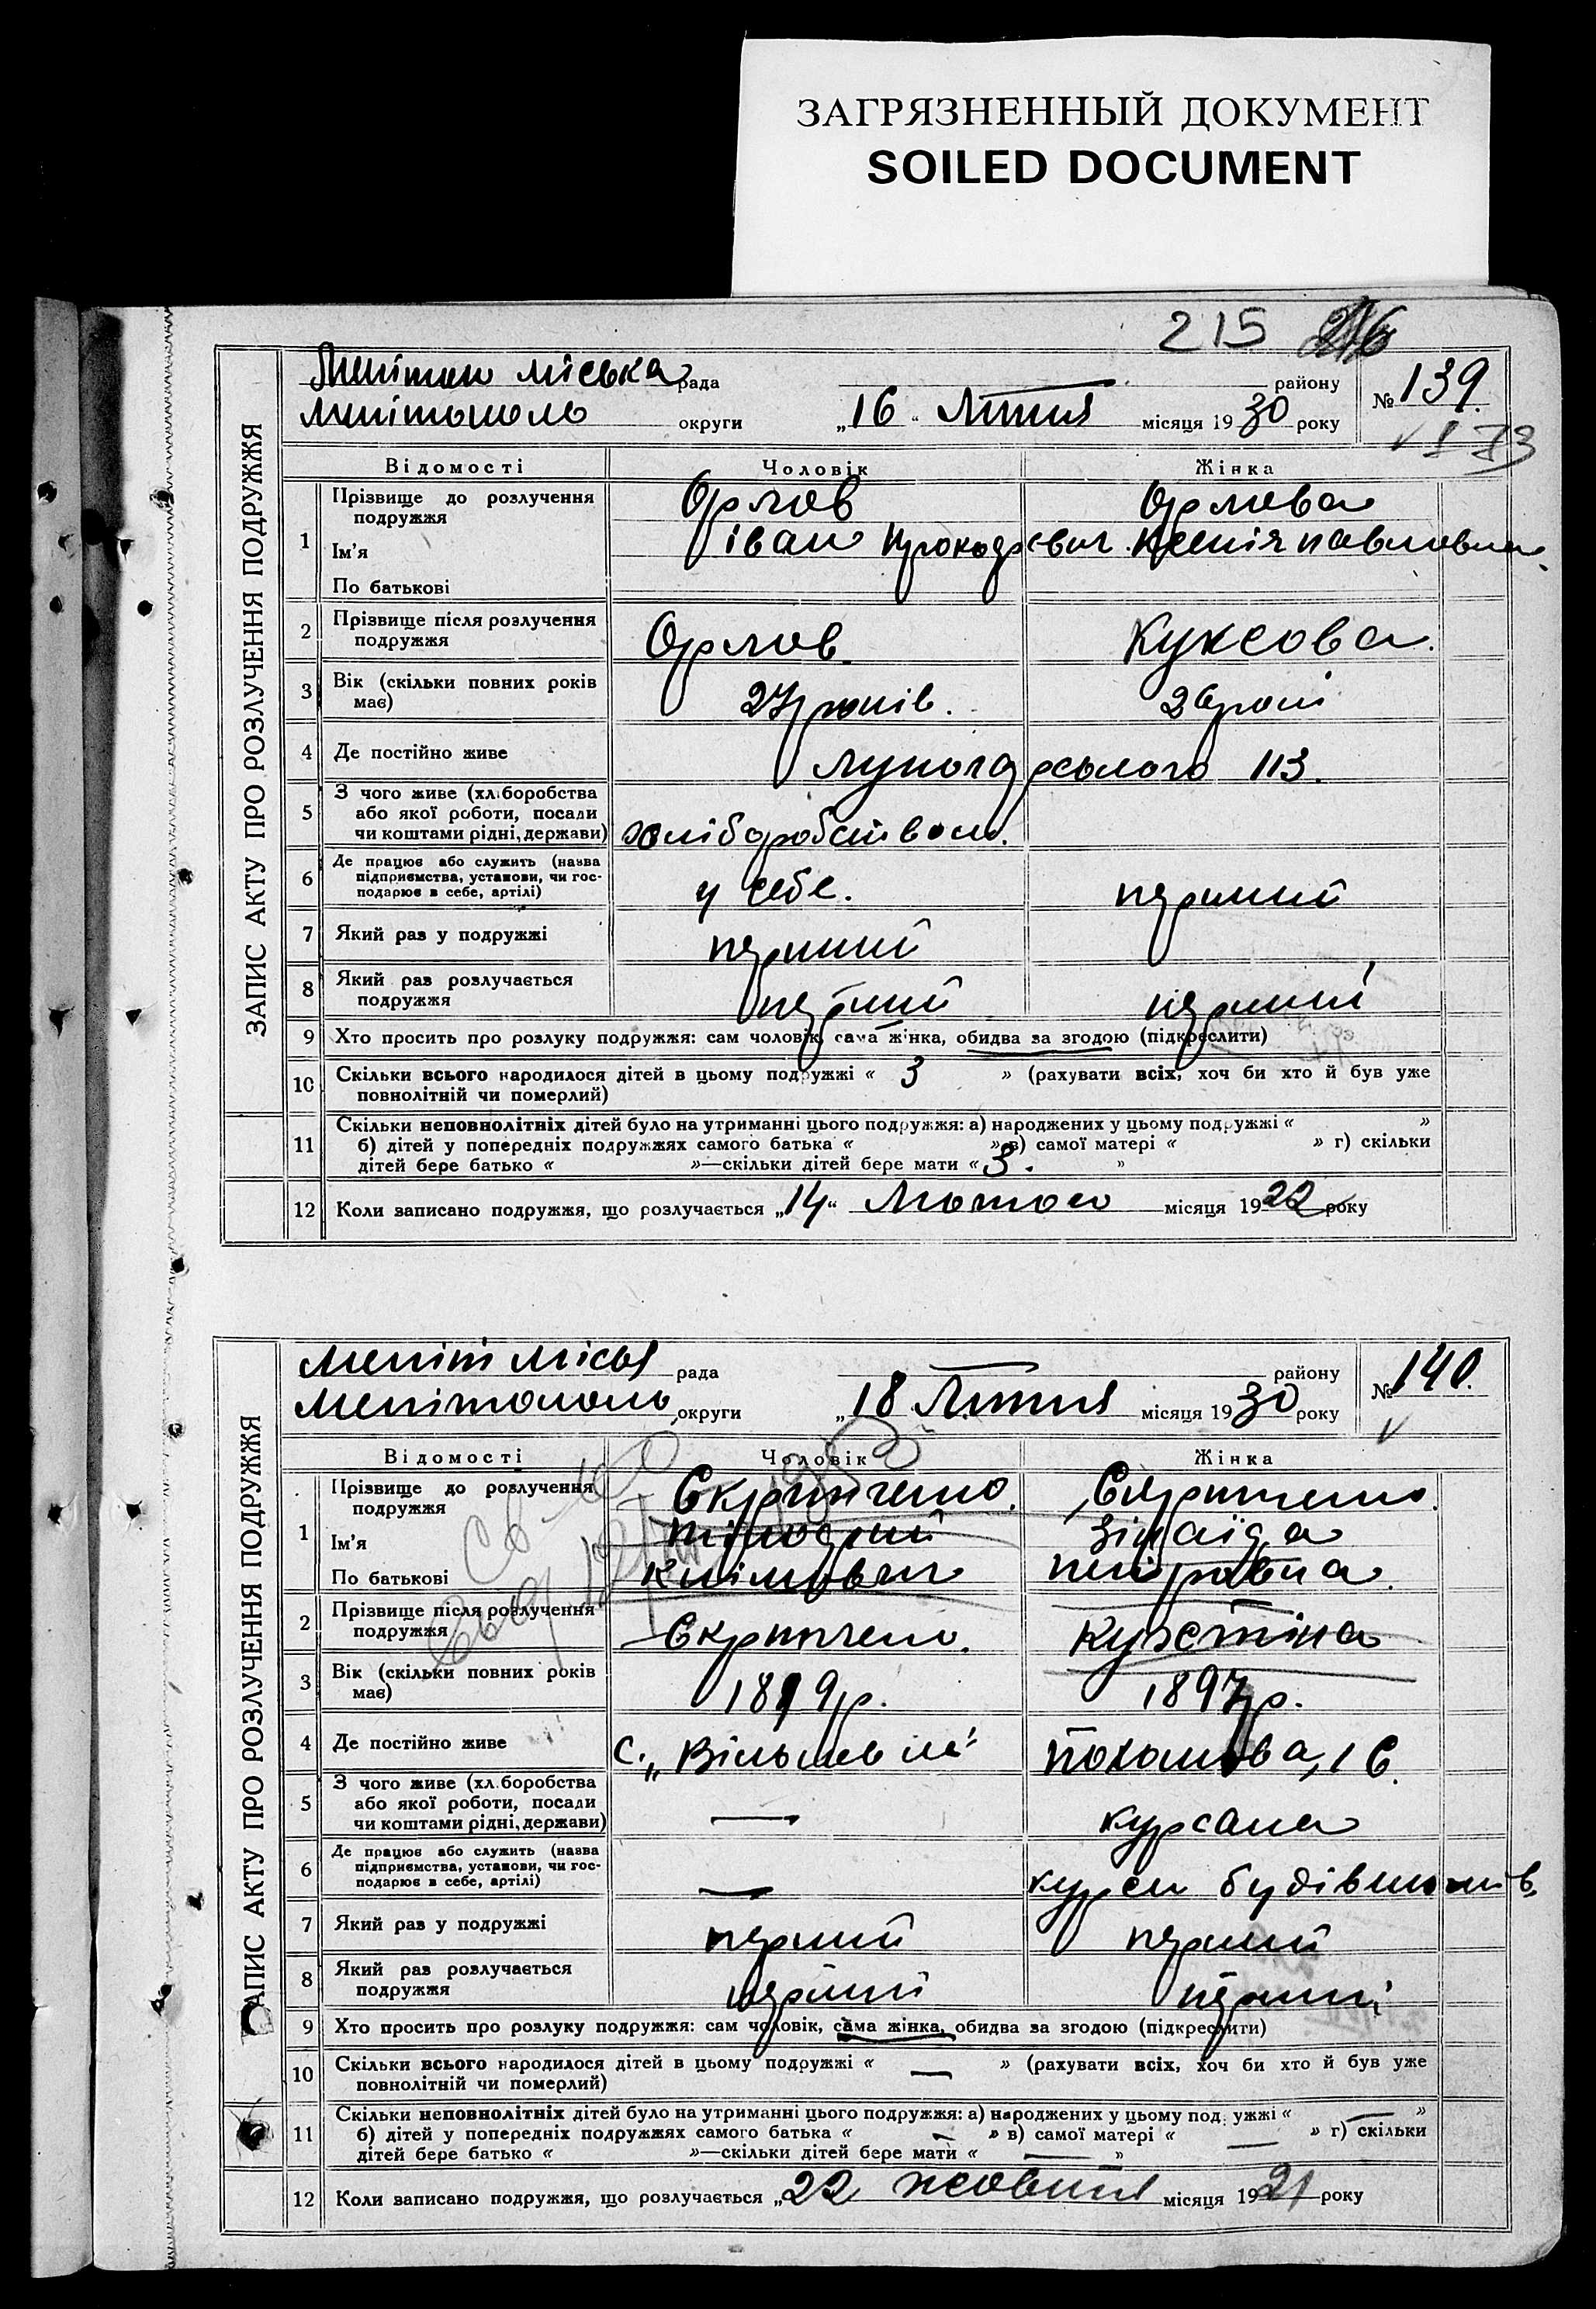 ЗАГРЯЗНЕННЫЙ ДОКУМЕНТ
SOILED DOCUMENT
215
ЗАПИС АКТУ ПРО РОЗЛУЧЕННЯ ПОДРУЖЖЯ
міська рада району
Мелітополь округи „16“ Липня місяця 1930 року
№ 139.
Відомості Чоловік Жінка
1 Прізвище до розлучення подружжя Орлов Орлова
Ім'я Іван Ксенія Павловна
По батькові
2 Прізвище після розлучення подружжя Орлов. Куксова.
3 Вік (скільки повних років має) 27 років. 26 рокі
4 Де постійно живе 113.
5 З чого живе (хліборобства
або якої роботи, посади
чи коштами рідні, держави) хліборобством.
6 Де працює або служить (назва
підприємства, установи, чи гос-
подарює в себе, артілі) у себе. перший
7 Який раз у подружжі перший
8 Який раз розлучається подружжя перший перший
9 Хто просить про розлуку подружжя: сам чоловік, сама жінка, обидва за згодою (підкреслити)
10 Скільки всього народилося дітей в цьому подружжі « 3 » (рахувати всіх, хоч би хто й був уже
повнолітній чи померлий)
11 Скільки неповнолітніх дітей було на утриманні цього подружжя: а) народжених у цьому подружжі « »
б) дітей у попередніх подружжях самого батька « » в) самої матері « » г) скільки
дітей бере батько « »—скільки дітей бере мати « 3. »
12 Коли записано подружжя, що розлучається „14“ Лютого місяця 1922 року
ЗАПИС АКТУ ПРО РОЗЛУЧЕННЯ ПОДРУЖЖЯ
Меліт міськ рада району
Мелітополь округи „18 Липня місяця 1930 року
№ 140.
Відомості Чоловік Жінка
1 Прізвище до розлучення подружжя
Ім'я Зінаїда
По батькові Клімович Петровна
2 Прізвище після розлучення подружжя
3 Вік (скільки повних років має) 1899р. 1897р.
4 Де постійно живе с.
5 З чого живе (хліборобства
або якої роботи, посади
чи коштами рідні, держави) — курсана
6 Де працює або служить (назва
підприємства, установи, чи гос-
подарює в себе, артілі) — курси
7 Який раз у подружжі перший перший
8 Який раз розлучається подружжя перший перший
9 Хто просить про розлуку подружжя: сам чоловік, сама жінка, обидва за згодою (підкреслити)
10 Скільки всього народилося дітей в цьому подружжі « — » (рахувати всіх, хоч би хто й був уже
повнолітній чи померлий)
11 Скільки неповнолітніх дітей було на утриманні цього подружжя: а) народжених у цьому подружжі « — »
б) дітей у попередніх подружжях самого батька « — » в) самої матері « — » г) скільки
дітей бере батько « »—скільки дітей бере мати « — »
12 Коли записано подружжя, що розлучається „22 жовтня місяця 1921 року